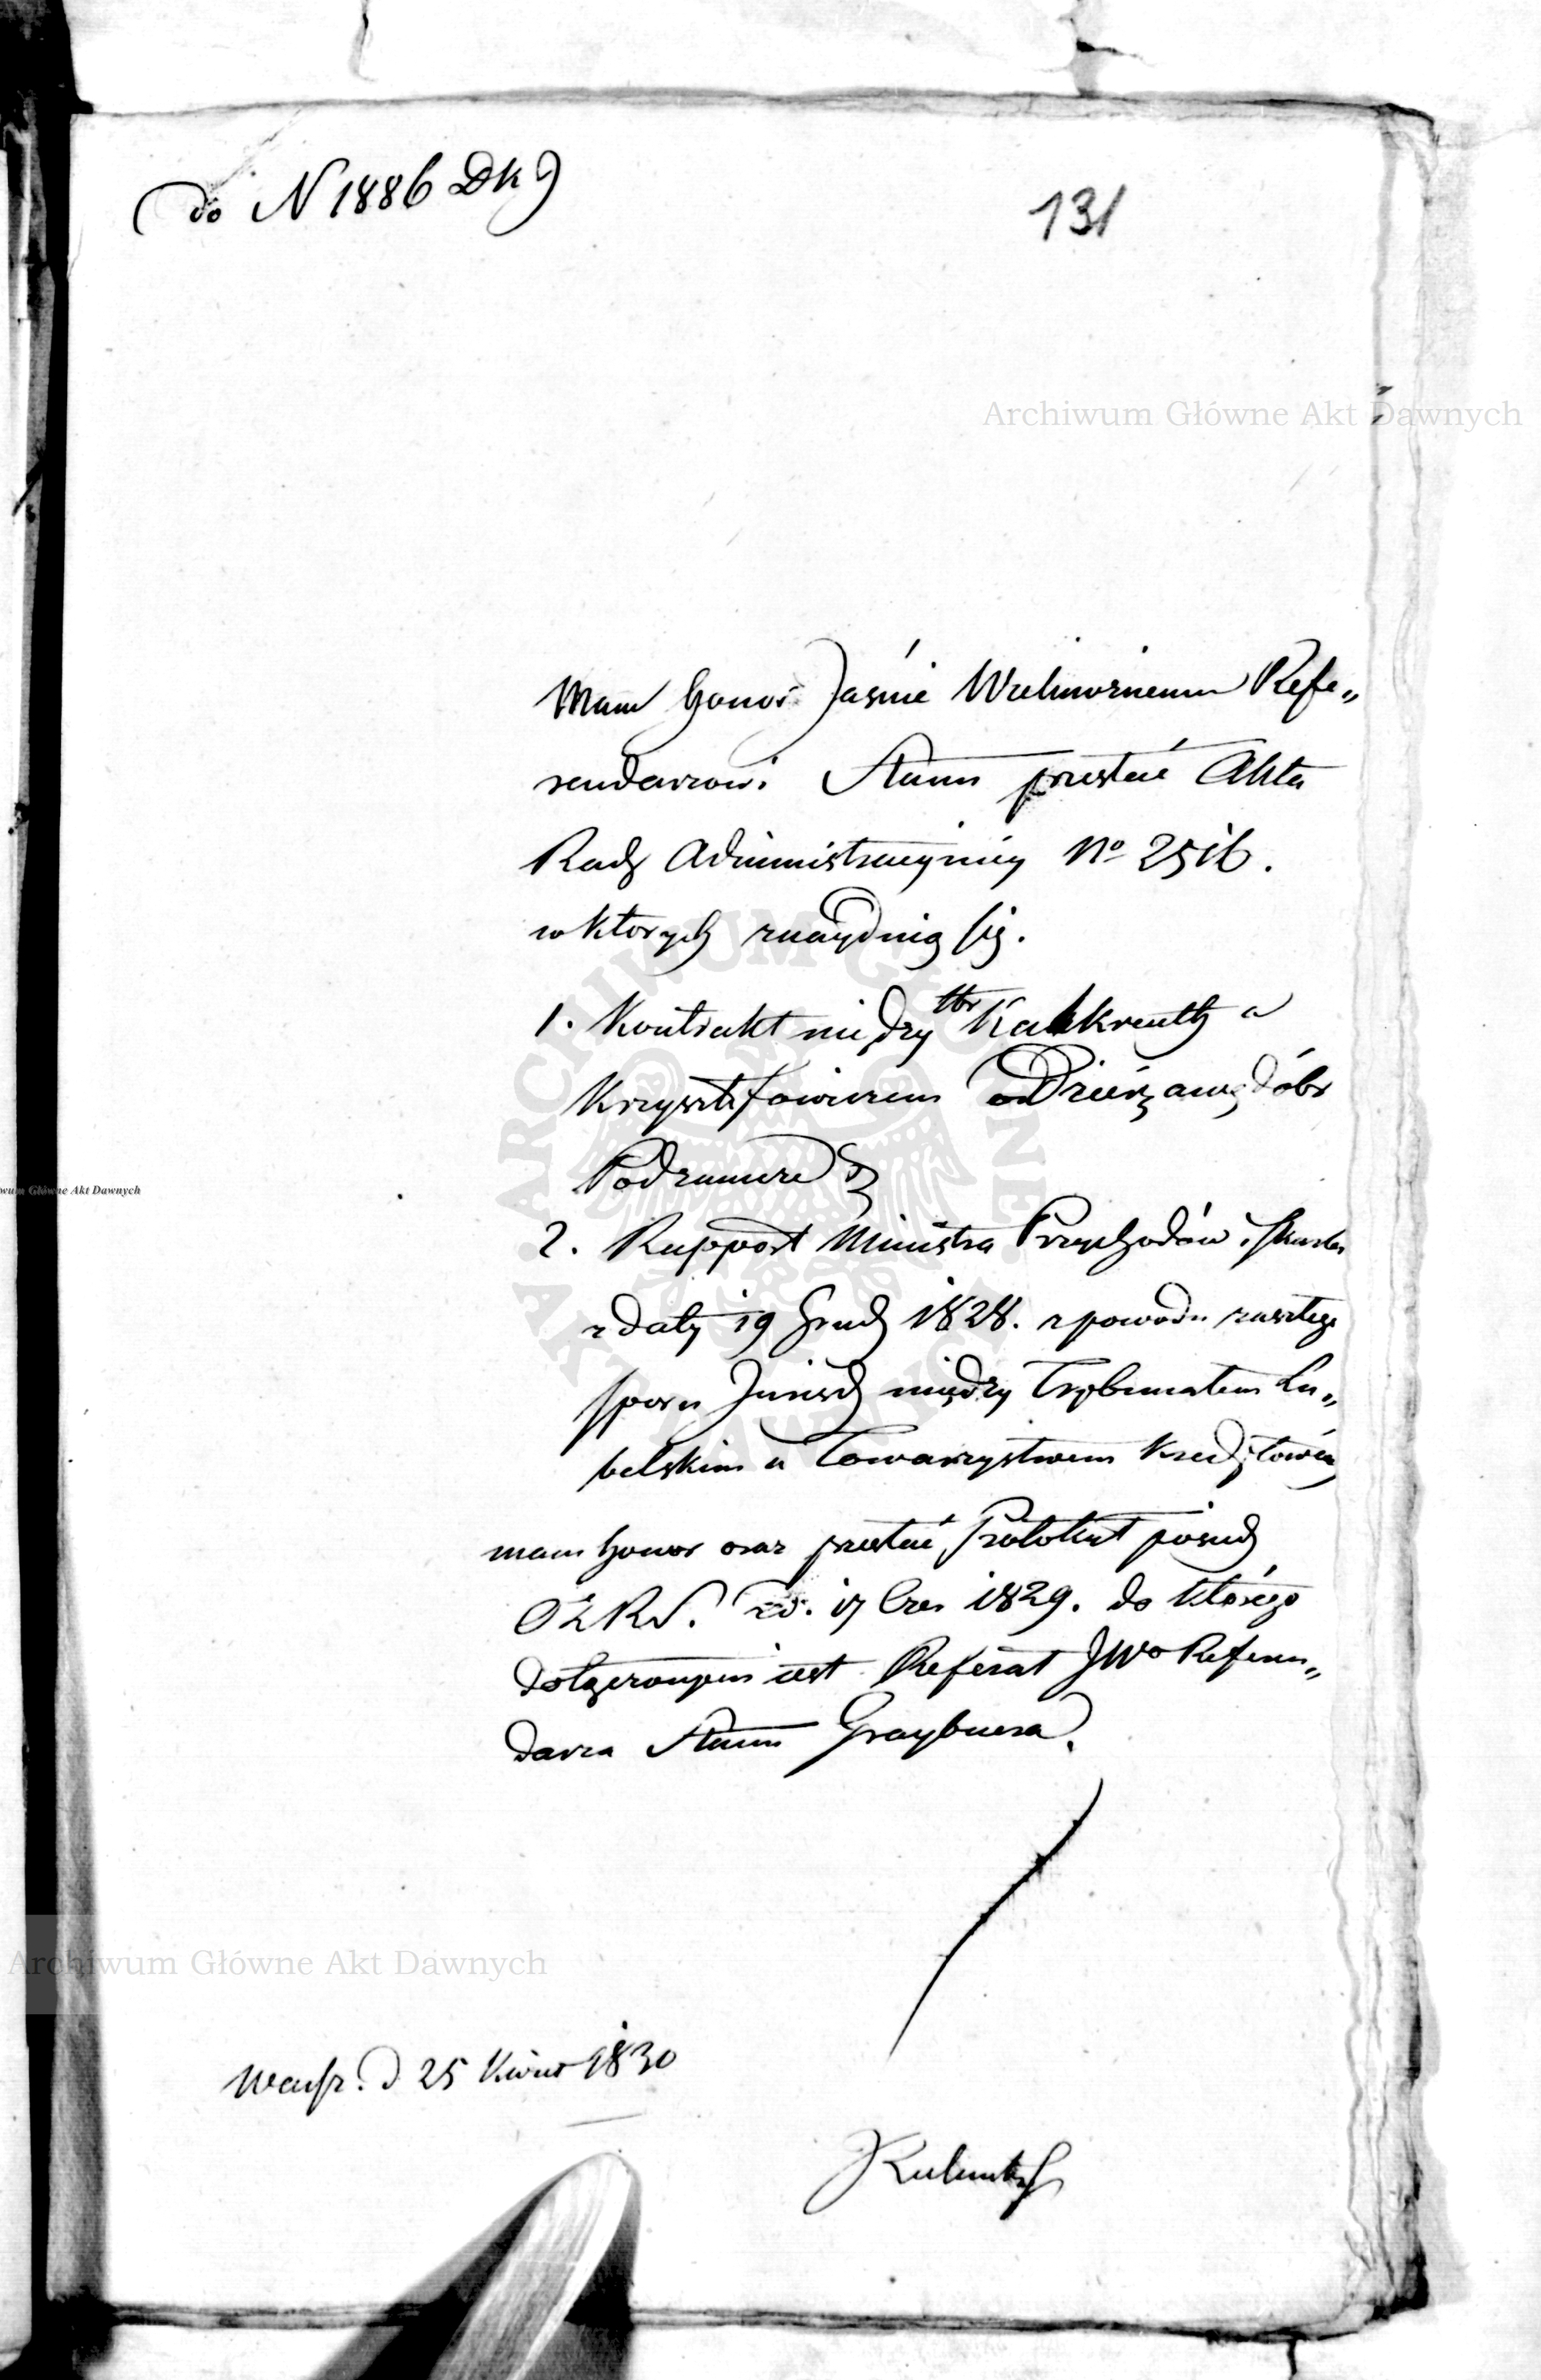 (do N 1886 Dk)
131
Archiwum Główne Akt Dawnych
Mam honor Jaśnie Wielmożnemu Refe„
rendarzowi Stanu przesłać Akta
Rady Administracyiney No 2516.
w ktorych znayduią się.
1. Kontrakt między Hr Kalkreuth a
Krzysztofowiczem o Dzierżawę dóbr
Podzamcze
2. Rapport Ministra Przychodów i Skarbu
z daty 19 Grud 1828. z powodu zaszłego
sporu Jurisd między Trybunałem Lu„
belskim a Towarzystwem Kredytowém
mam honor oraz przesłać Protokuł posied
17 Cze 1829. do którego
dołączonym iest Referat JWo Referen„
darza Stanu Graybnera.
Archiwum Główne Akt Dawnych
Warsz. d 25 Kwiet 1830
ARCHIWUM GŁÓWNE AKT DAWNYCH
wum Główne Akt Dawnych